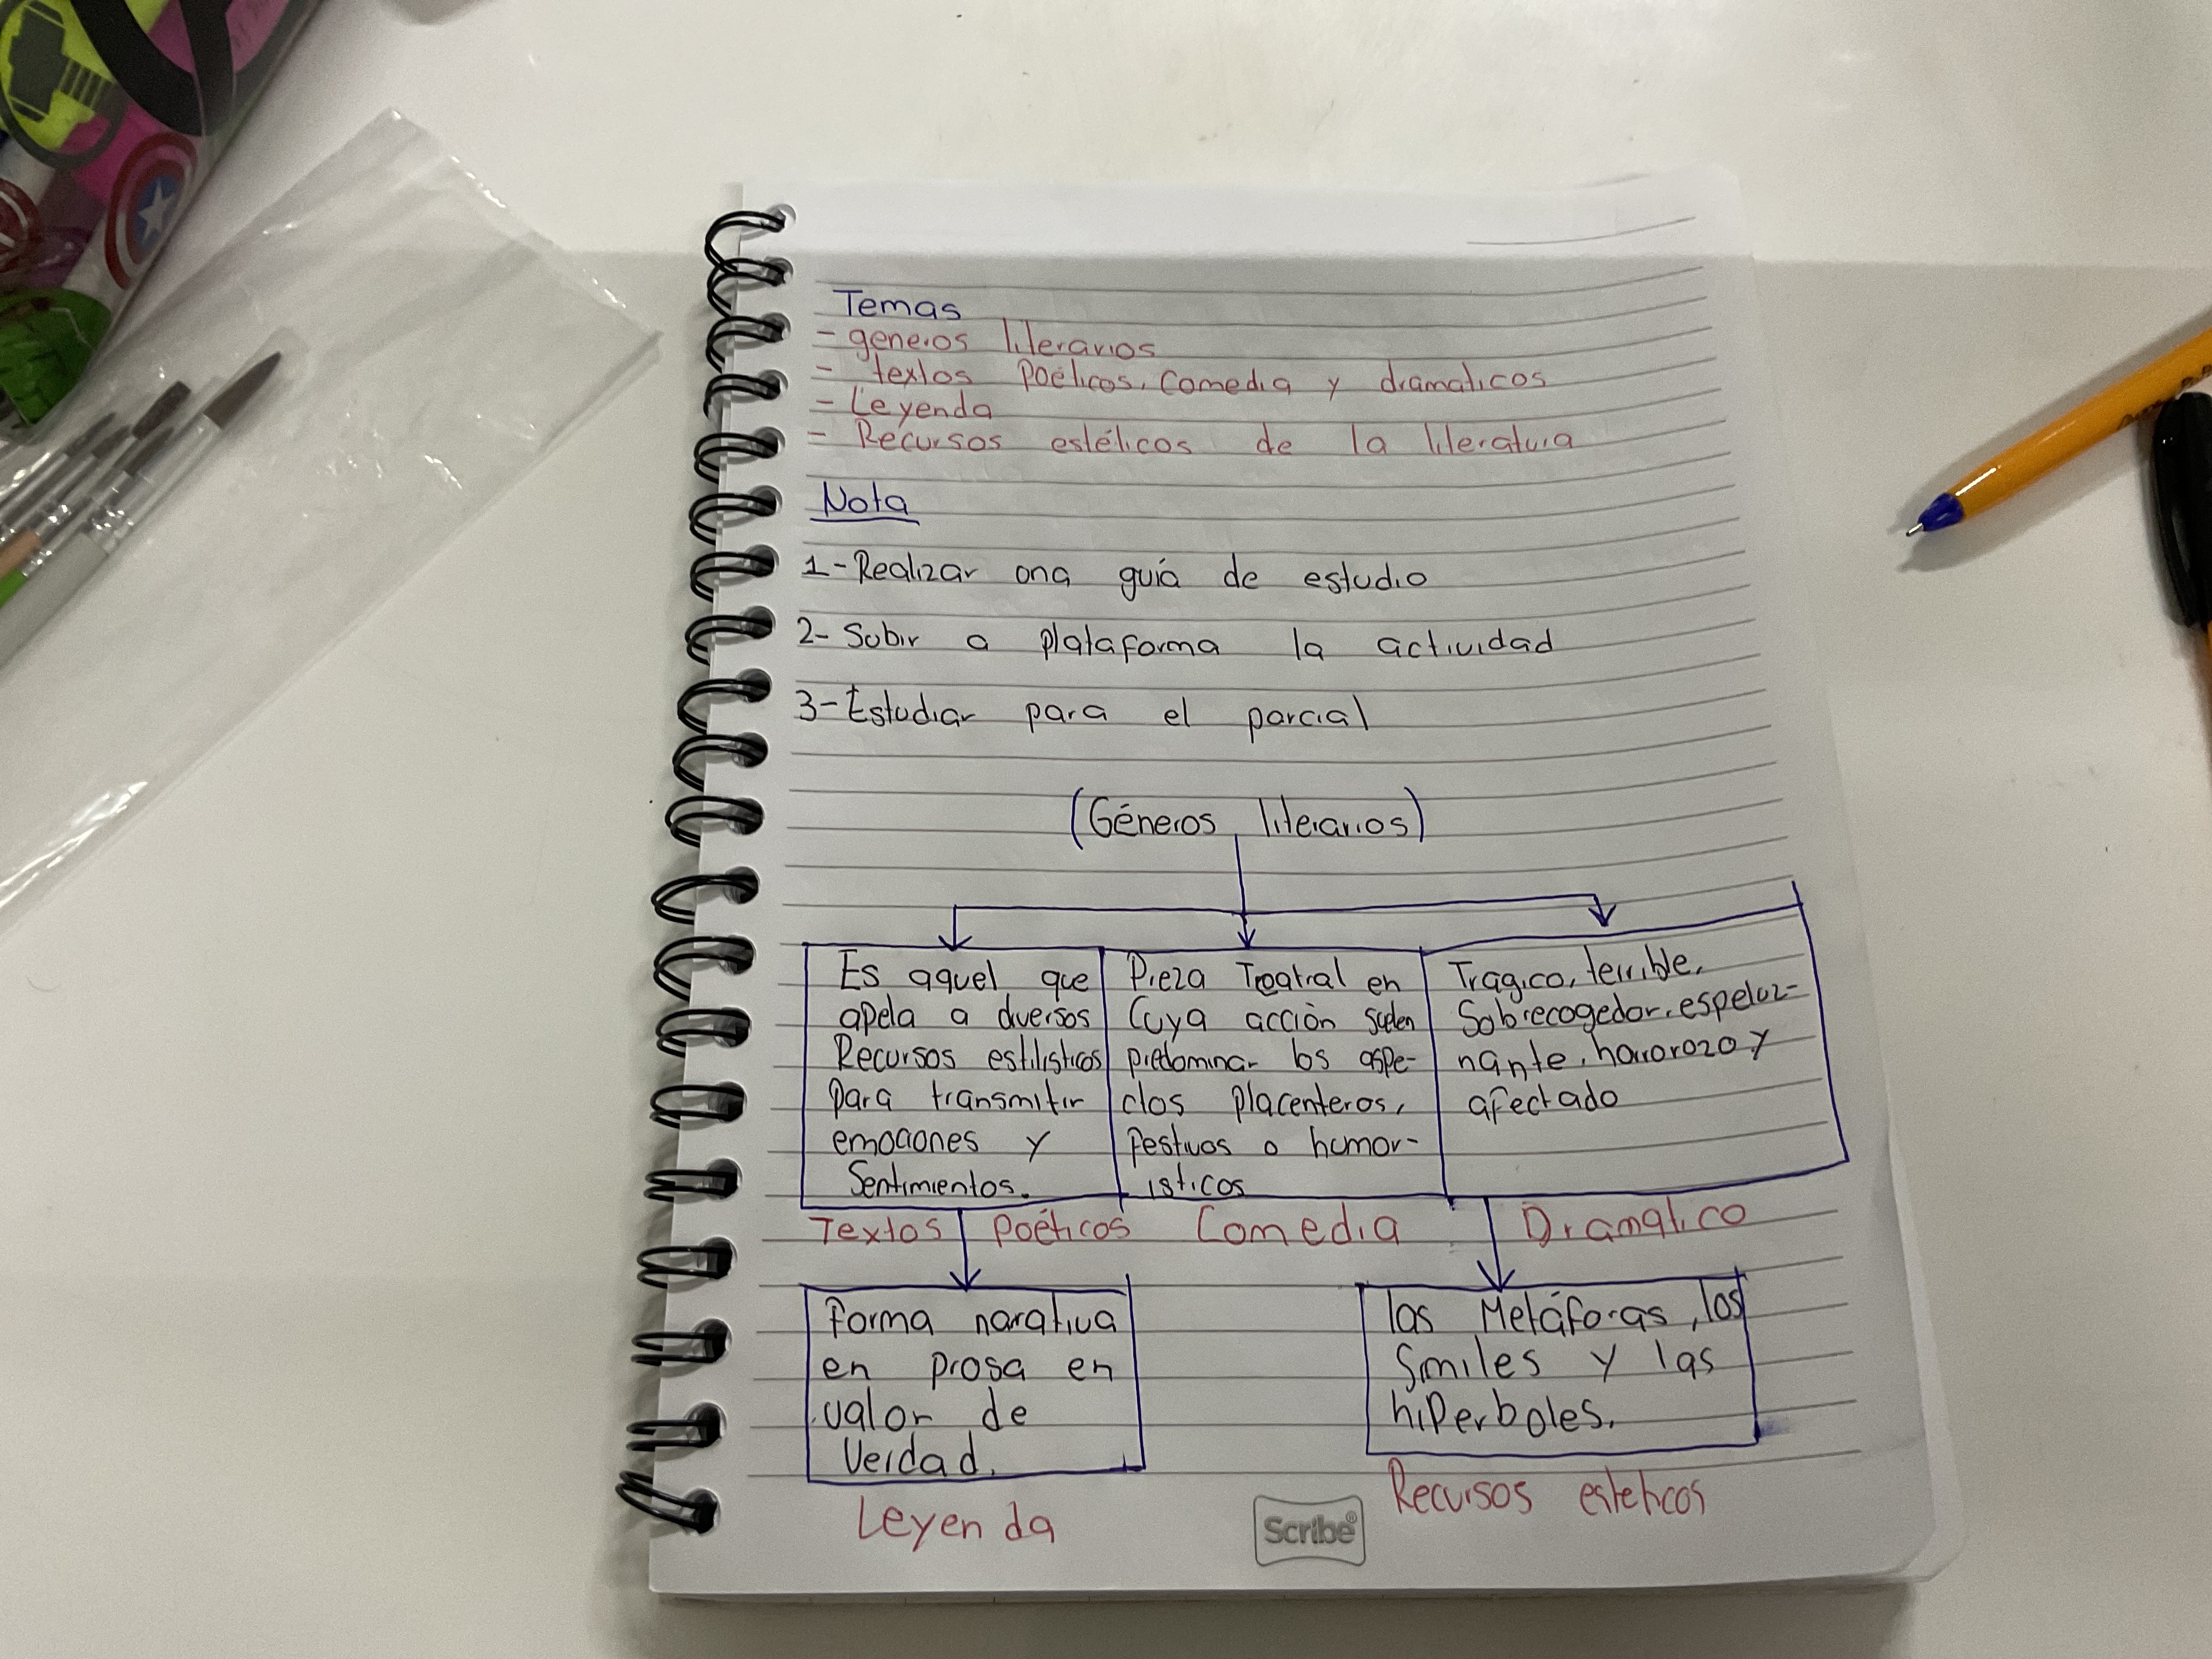 Temas
- generos literarios
- textos Poéticos, Comedia y dramaticos
- Leyenda
- Recursos estéticos de la literatura
Nota
1- Realizar una guia de estudio
2- Subir a plataforma la actividad
3- Estudiar para el parcial
(Géneros literarios)
Es aquel que
apela a diversos
Recursos estilisticos
para transmitir
emociones y
Sentimientos.
Pieza Teatral en
Cuya acción suelen
predominar los aspe-
ctos Placenteros,
Festivos o humor-
isticos
Tragico, terrible,
Sobrecogedor, espeluz-
nante, horrorozo y
afectado
Textos Poéticos Comedia Dramatico
Forma narativa
en prosa en
valor de
Verdad.
las Metáforas, los
Smiles y las
hiperboles.
Leyenda
Recursos esteticos
Scribe®